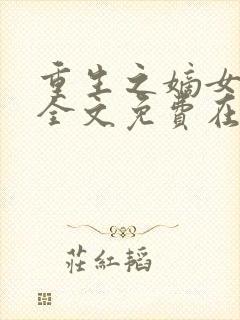 重生之嫡女
全文免費在
莊紅韜